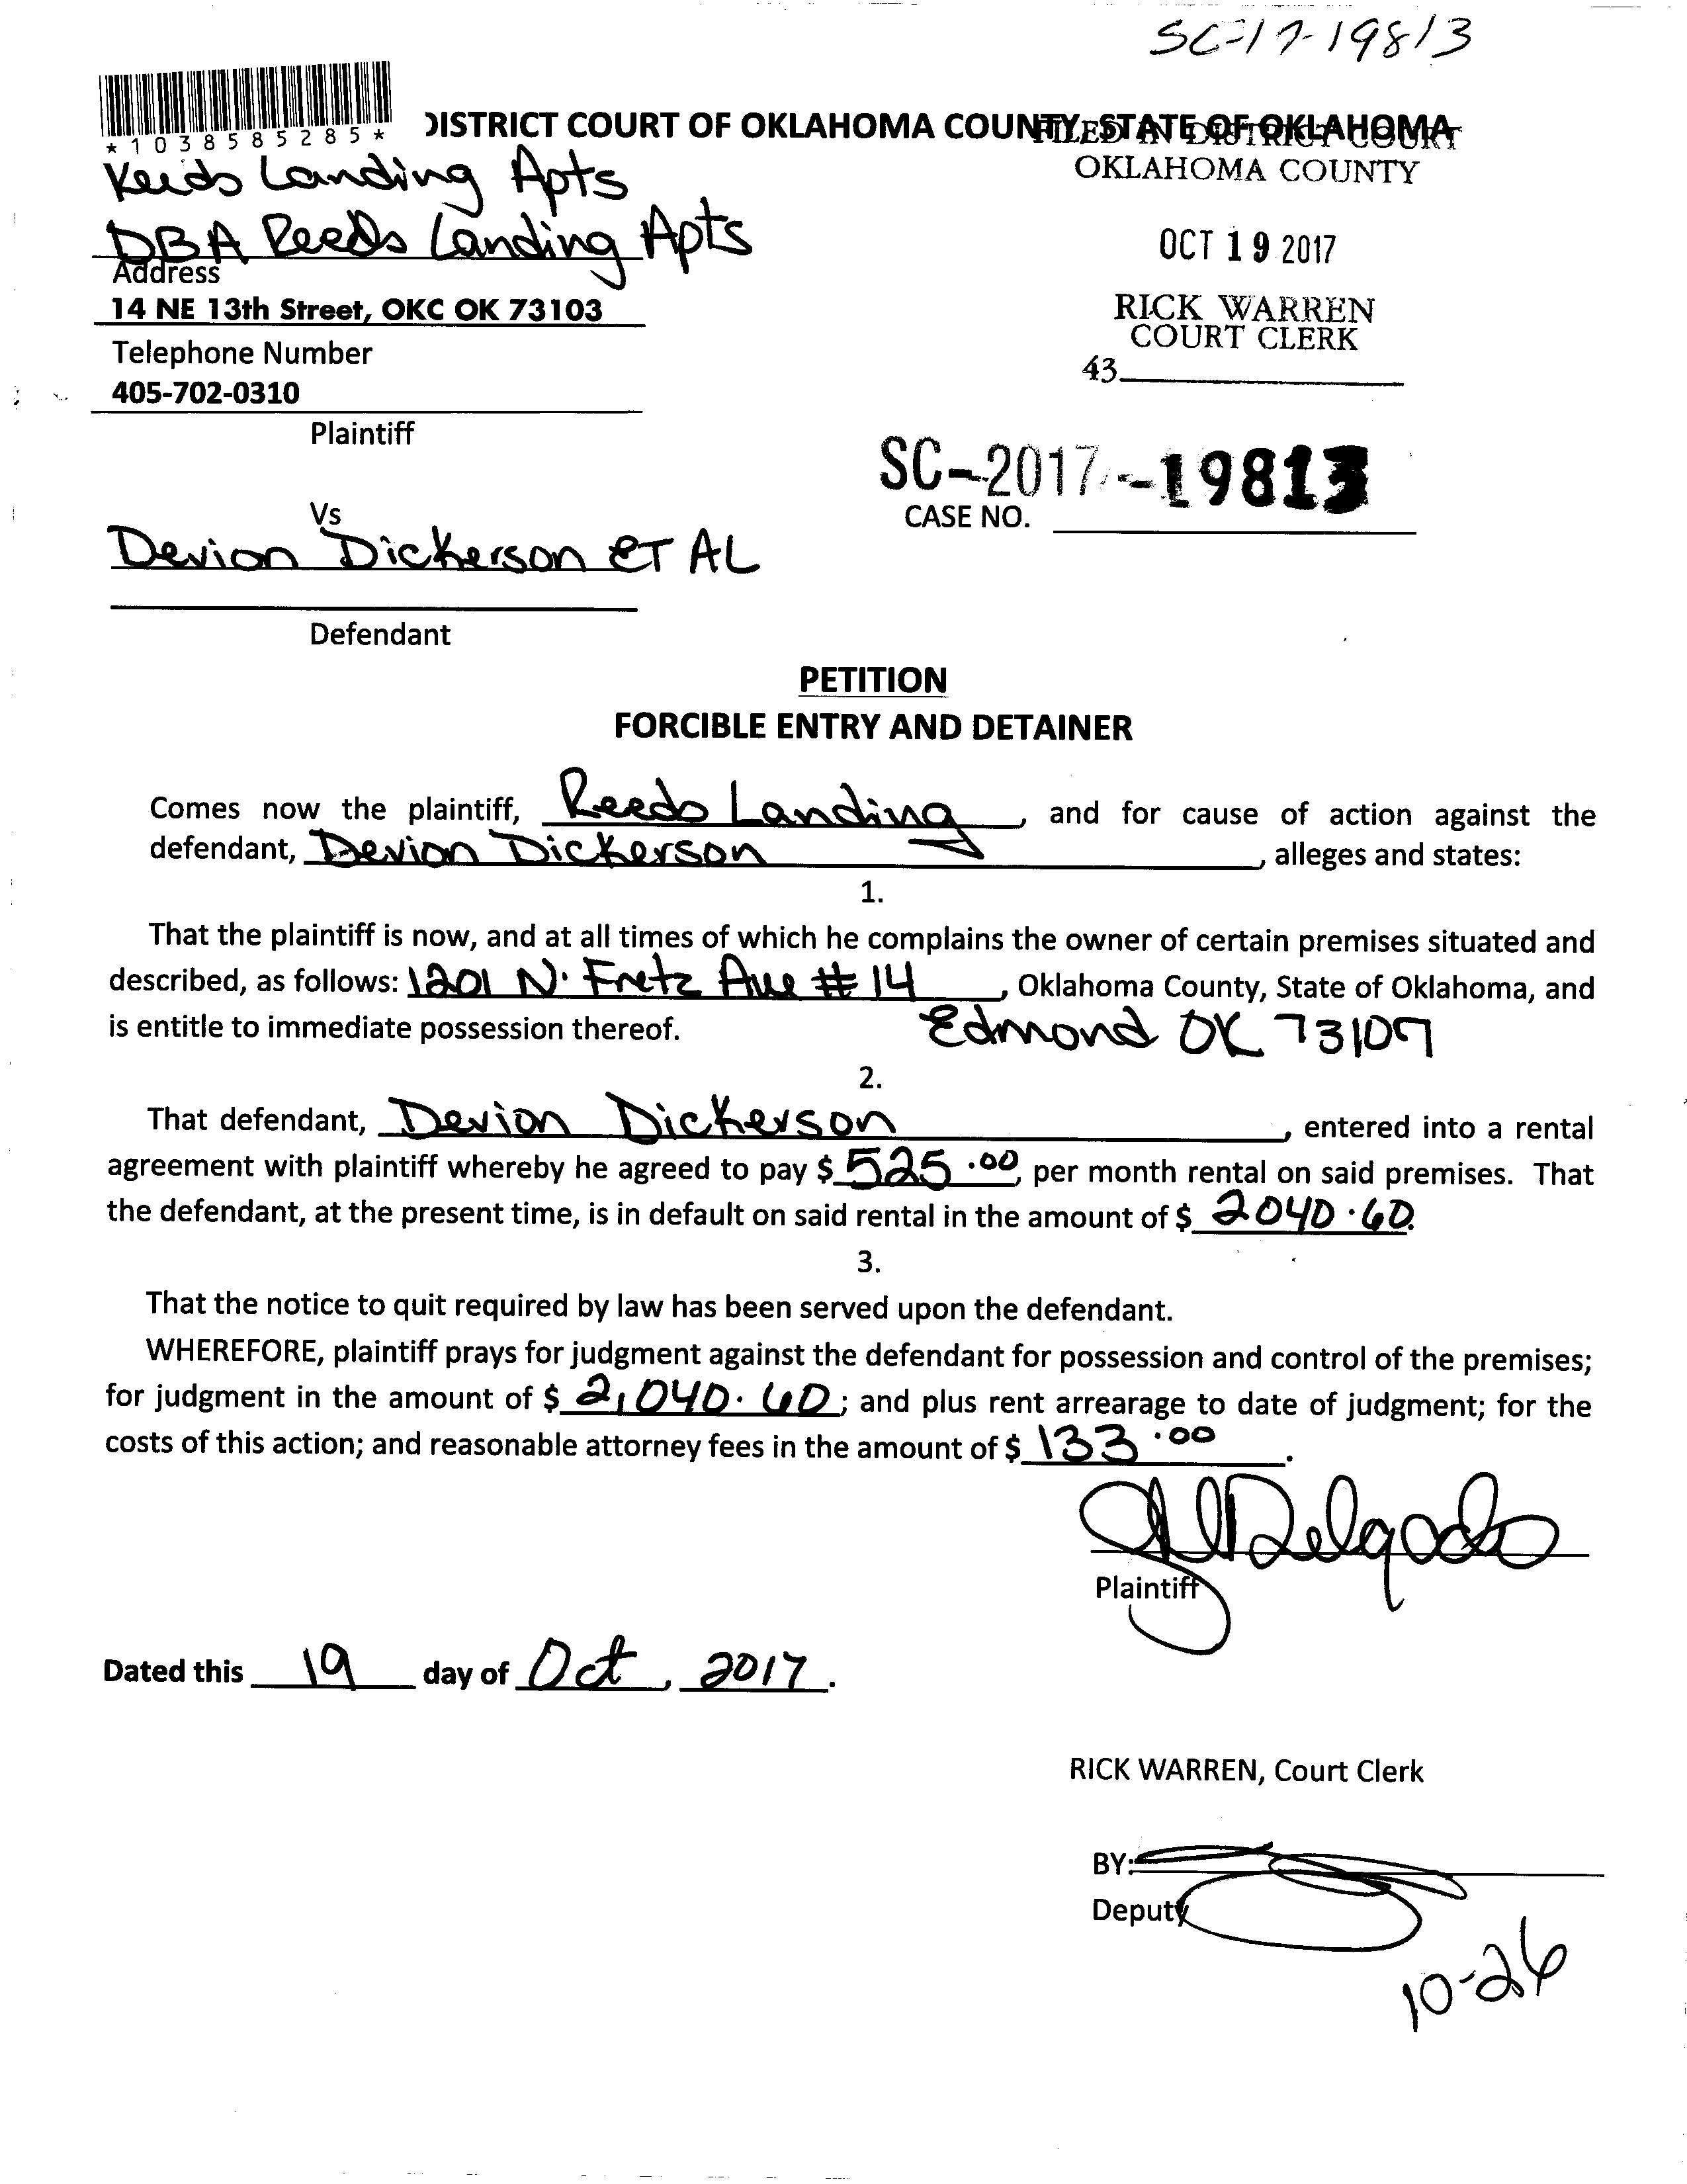 SC-17-19813
*1038585285*
DISTRICT COURT OF OKLAHOMA COUNTY, STATE OF OKLAHOMA
FILED IN DISTRICT COURT
OKLAHOMA COUNTY
Landing Apts
DBA Reeds Landing Apts
OCT 19 2017
Address
14 NE 13th Street, OKC OK 73103
RICK WARREN
COURT CLERK
Telephone Number
43
405-702-0310
Plaintiff
SC-2017-19813
CASE NO.
Vs
Devion Dickerson ET AL
Defendant
PETITION
FORCIBLE ENTRY AND DETAINER
Comes now the plaintiff, Reeds Landing, and for cause of action against the
defendant, Devion Dickerson, alleges and states:
1.
That the plaintiff is now, and at all times of which he complains the owner of certain premises situated and
described, as follows: 1201 N. Fretz Ave # 14, Oklahoma County, State of Oklahoma, and
is entitle to immediate possession thereof. Edmond OK 73107
2.
That defendant, Devion Dickerson, entered into a rental
agreement with plaintiff whereby he agreed to pay $ 525.00, per month rental on said premises. That
the defendant, at the present time, is in default on said rental in the amount of $ 2040.60.
3.
That the notice to quit required by law has been served upon the defendant.
WHEREFORE, plaintiff prays for judgment against the defendant for possession and control of the premises;
for judgment in the amount of $ 2,040.60; and plus rent arrearage to date of judgment; for the
costs of this action; and reasonable attorney fees in the amount of $ 133.00.
Delgado
Plaintiff
Dated this 19 day of Oct, 2017.
RICK WARREN, Court Clerk
BY:
Deputy
10-26